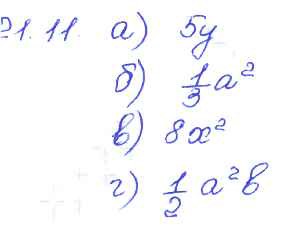 21.11. а) 5y
б) 1/3 a²
в) 8x²
г) 1/2 a²b